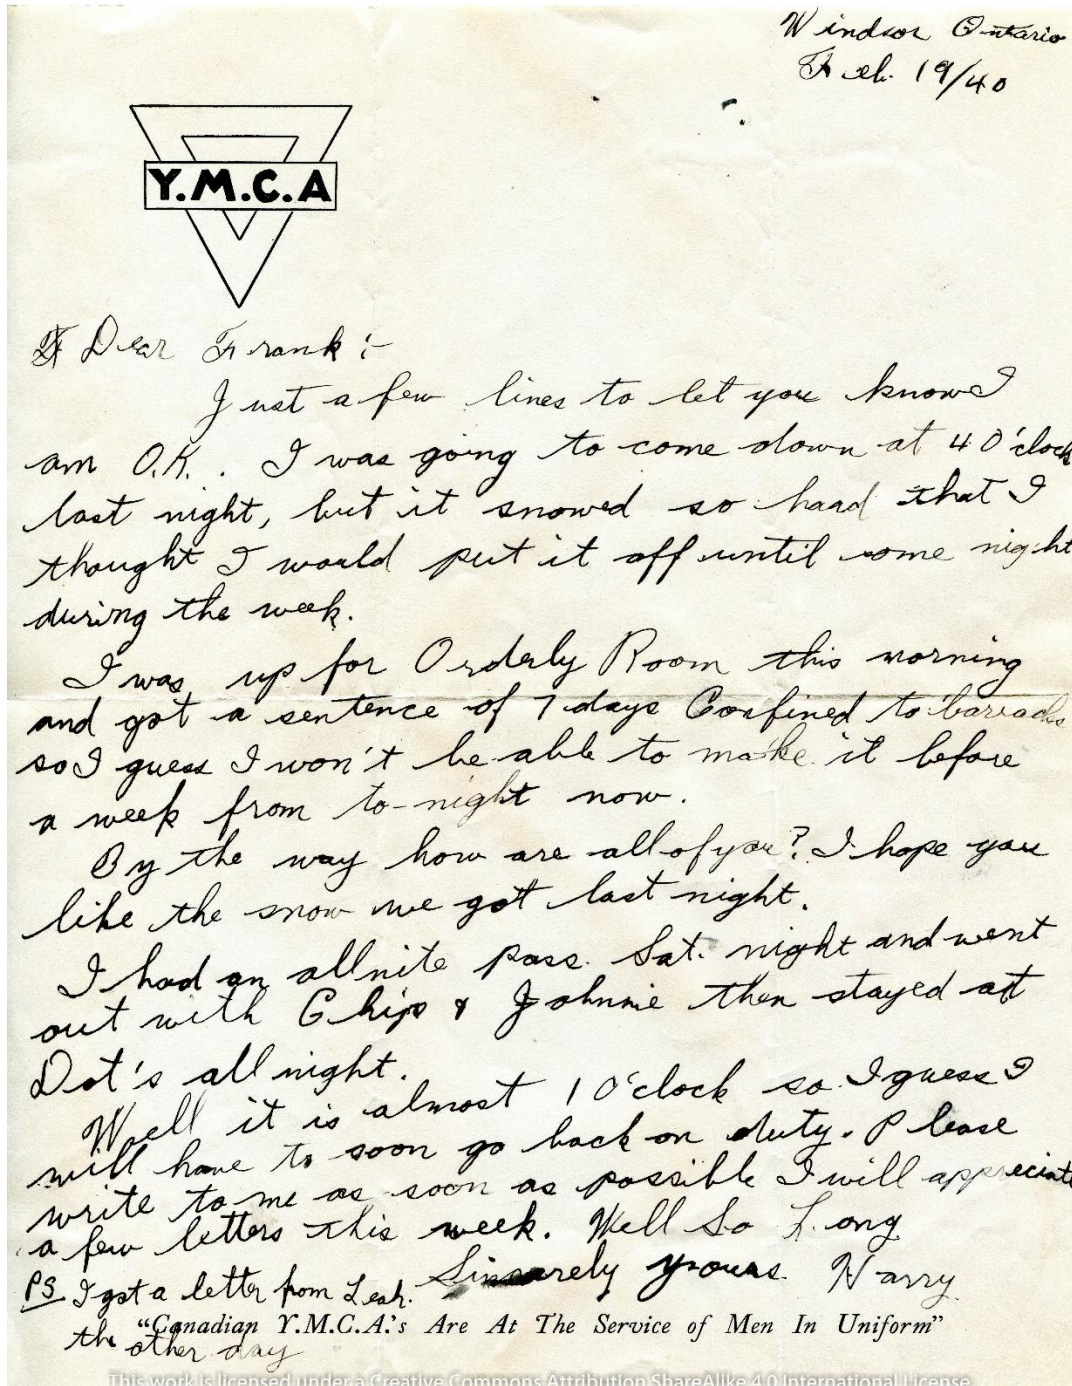 Windsor Ontario
Feb. 19/40
Y.M.C.A
Dear Frank:-
Just a few lines to let you know I
am O.K.. I was going to come down at 4 O'clock
last night, but it snowed so hard that I
thought I would put it off until some night
during the week.
I was up for Orderly Room this morning
and got a sentence of 7 days Confined to barracks
so I guess I won't be able to make it before
a week from to-night now.
By the way how are all of you? I hope you
like the snow we got last night.
I had an all nite pass. Sat. night and went
out with Chip & Johnnie then stayed at
Dot's all night.
Well it is almost 1 O'clock so I guess I
will have to soon go back on duty. Please
write to me as soon as possible I will appreciate
a few letters this week. Well So Long
Sincerely yours. Harry
PS I got a letter from Leah.
the other day
"Canadian Y.M.C.A.'s Are At The Service of Men In Uniform"
This work is licensed under a Creative Commons Attribution ShareAlike 4.0 International License